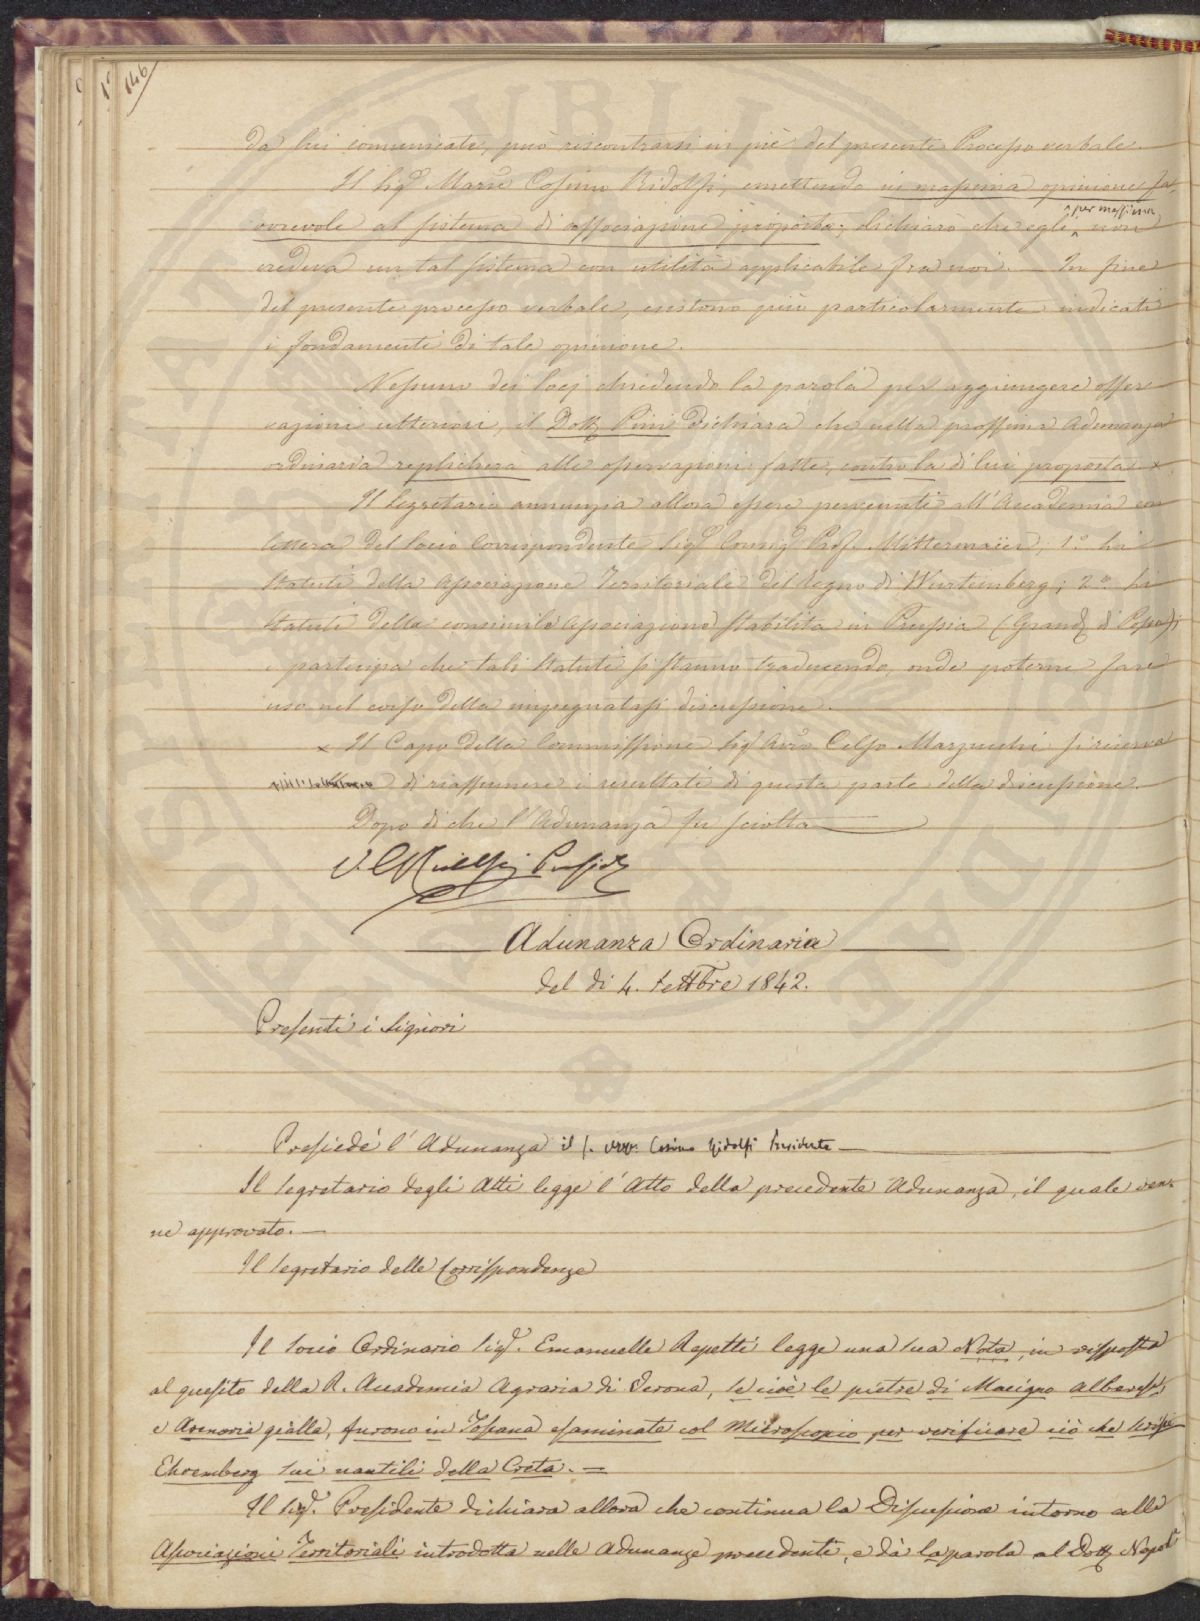 146
da lui comunicate, può riscontrarsi in piè del presente Processo verbale.
Il Sig.e Marse Cosimo Ridolfi, emettendo in massima opinione fa-
vorevole al sistema di associazione proposto; dichiarò che egli per massima non
credeva un tal sistema con utilità applicabile fra noi. In fine
del presente processo verbale, esistono più particolarmente indicati
i fondamenti di tale opinione.
Nessuno dei Socj chiedendo la parola per aggiungere osser-
vazioni ulteriori, il Dott. Pini dichiara che nella prossima Adunanza
ordinaria replicherà alle osservazioni fatte, contro la di lui proposta x
Il Segretario annunzia allora essere pervenuti all'Accademia con
lettera del Socio Corrispondente Sig.e Consig.e Prof. Mittermaïer; 1.o Li
Statuti della Associazione Territoriale del Regno di Würtemberg; 2.o Li
Statuti della consimile Associazione stabilita in Prussia (Grand. di Posen);
e partecipa che tali Statuti si stanno traducendo, onde poterne fare
uso nel corso della impegnatasi discussione.
x Il Capo della Commissione Sig. Avv.o Celso Marzucchi si riserva
di riassumere i resultati di questa parte della discussione.
Dopo di che l'Adunanza fu sciolta
C. Ridolfi Presid.
Adunanza Ordinaria
del dì 4. Settbre 1842.
Presenti i Signori
Presiede l'Adunanza il S. Cosimo Ridolfi Presidente
Il Segretario degli Atti legge l'Atto della precedente Adunanza, il quale ven-
ne approvato.
Il Segretario delle Corrispondenze
Il Socio Ordinario Sig.e Emanuelle Repetti legge una sua Nota, in risposta
al quesito della R. Accademia Agraria di Verona, se cioè le pietre di Macigno Alberese,
e Arenaria gialla, furono in Toscana esaminate col Microscopio per verificare ciò che scrisse
Ehremberg sui nautili della Creta. =
Il Sig.e Presidente dichiara allora che continua la Discussione intorno alle
Associazioni Territoriali introdotta nelle Adunanze precedenti, e dà la parola al Dott. Napol.e